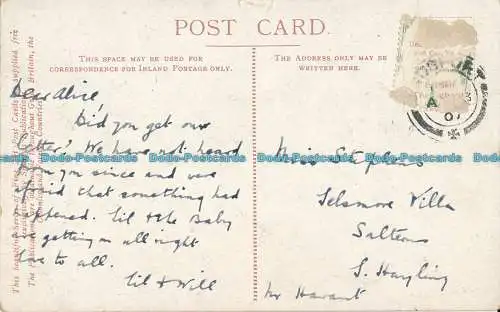 POST CARD.
THIS SPACE MAY BE USED FOR
CORRESPONDENCE FOR INLAND POSTAGE ONLY.
THE ADDRESS ONLY MAY BE
WRITTEN HERE.
Dear Alice,
Did you get our
letter? We have not heard
from you since and were
afraid that something had
happened. Lil & the Baby
are getting on all right
love to all.
Lil & Will
Miss Stephens
Selsmore Villa
Salterns
S. Hayling
Nr Havant
A
07
Dodo-Postcards Dodo-Postcards Dodo-Postcards Dodo-Postcards